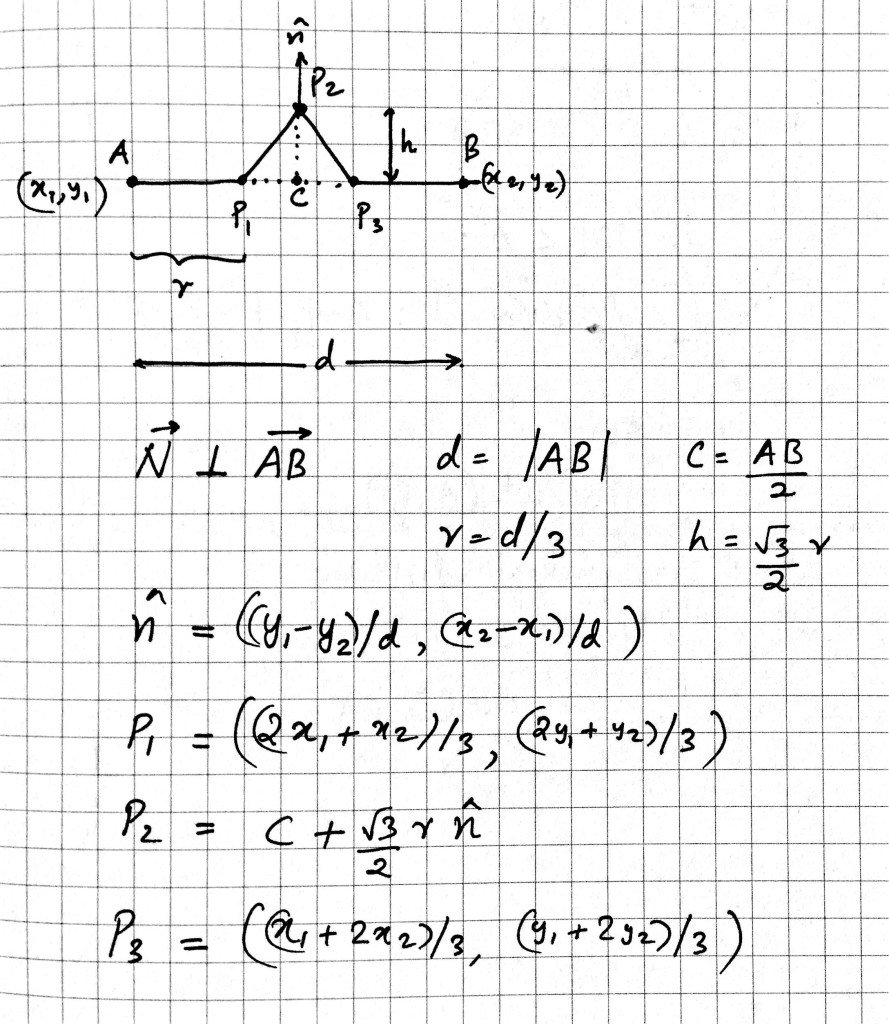 n̂
P₂
h
A
B
(x₁,y₁)
(x₂,y₂)
P₁
C
P₃
r
d
N⃗ ⊥ AB⃗ d = |AB| C = AB/2
r = d/3 h = √3/2 r
n̂ = ((y₁-y₂)/d, (x₂-x₁)/d)
P₁ = ((2x₁+x₂)/3, (2y₁+y₂)/3)
P₂ = C + √3/2 r n̂
P₃ = ((x₁+2x₂)/3, (y₁+2y₂)/3)